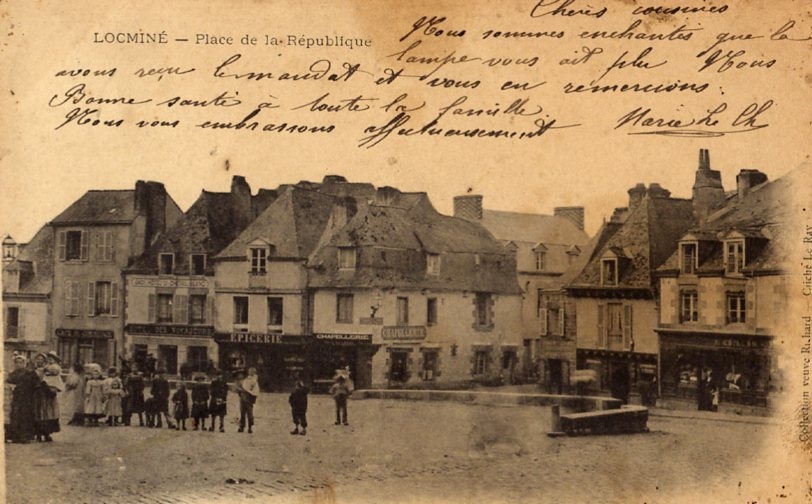 Chères cousines
LOCMINÉ — Place de la République
Nous sommes enchantés que la
lampe vous ait plu Nous
avons reçu le mandat et vous en remercions.
Bonne santé à toute la famille
Nous vous embrassons affectueusement Marie Le Ch
DES VOYAGEURS
EPICERIE
CHAPELLERIE
CHAPELLERIE
Collection veuve Richard Cliché Le Ray